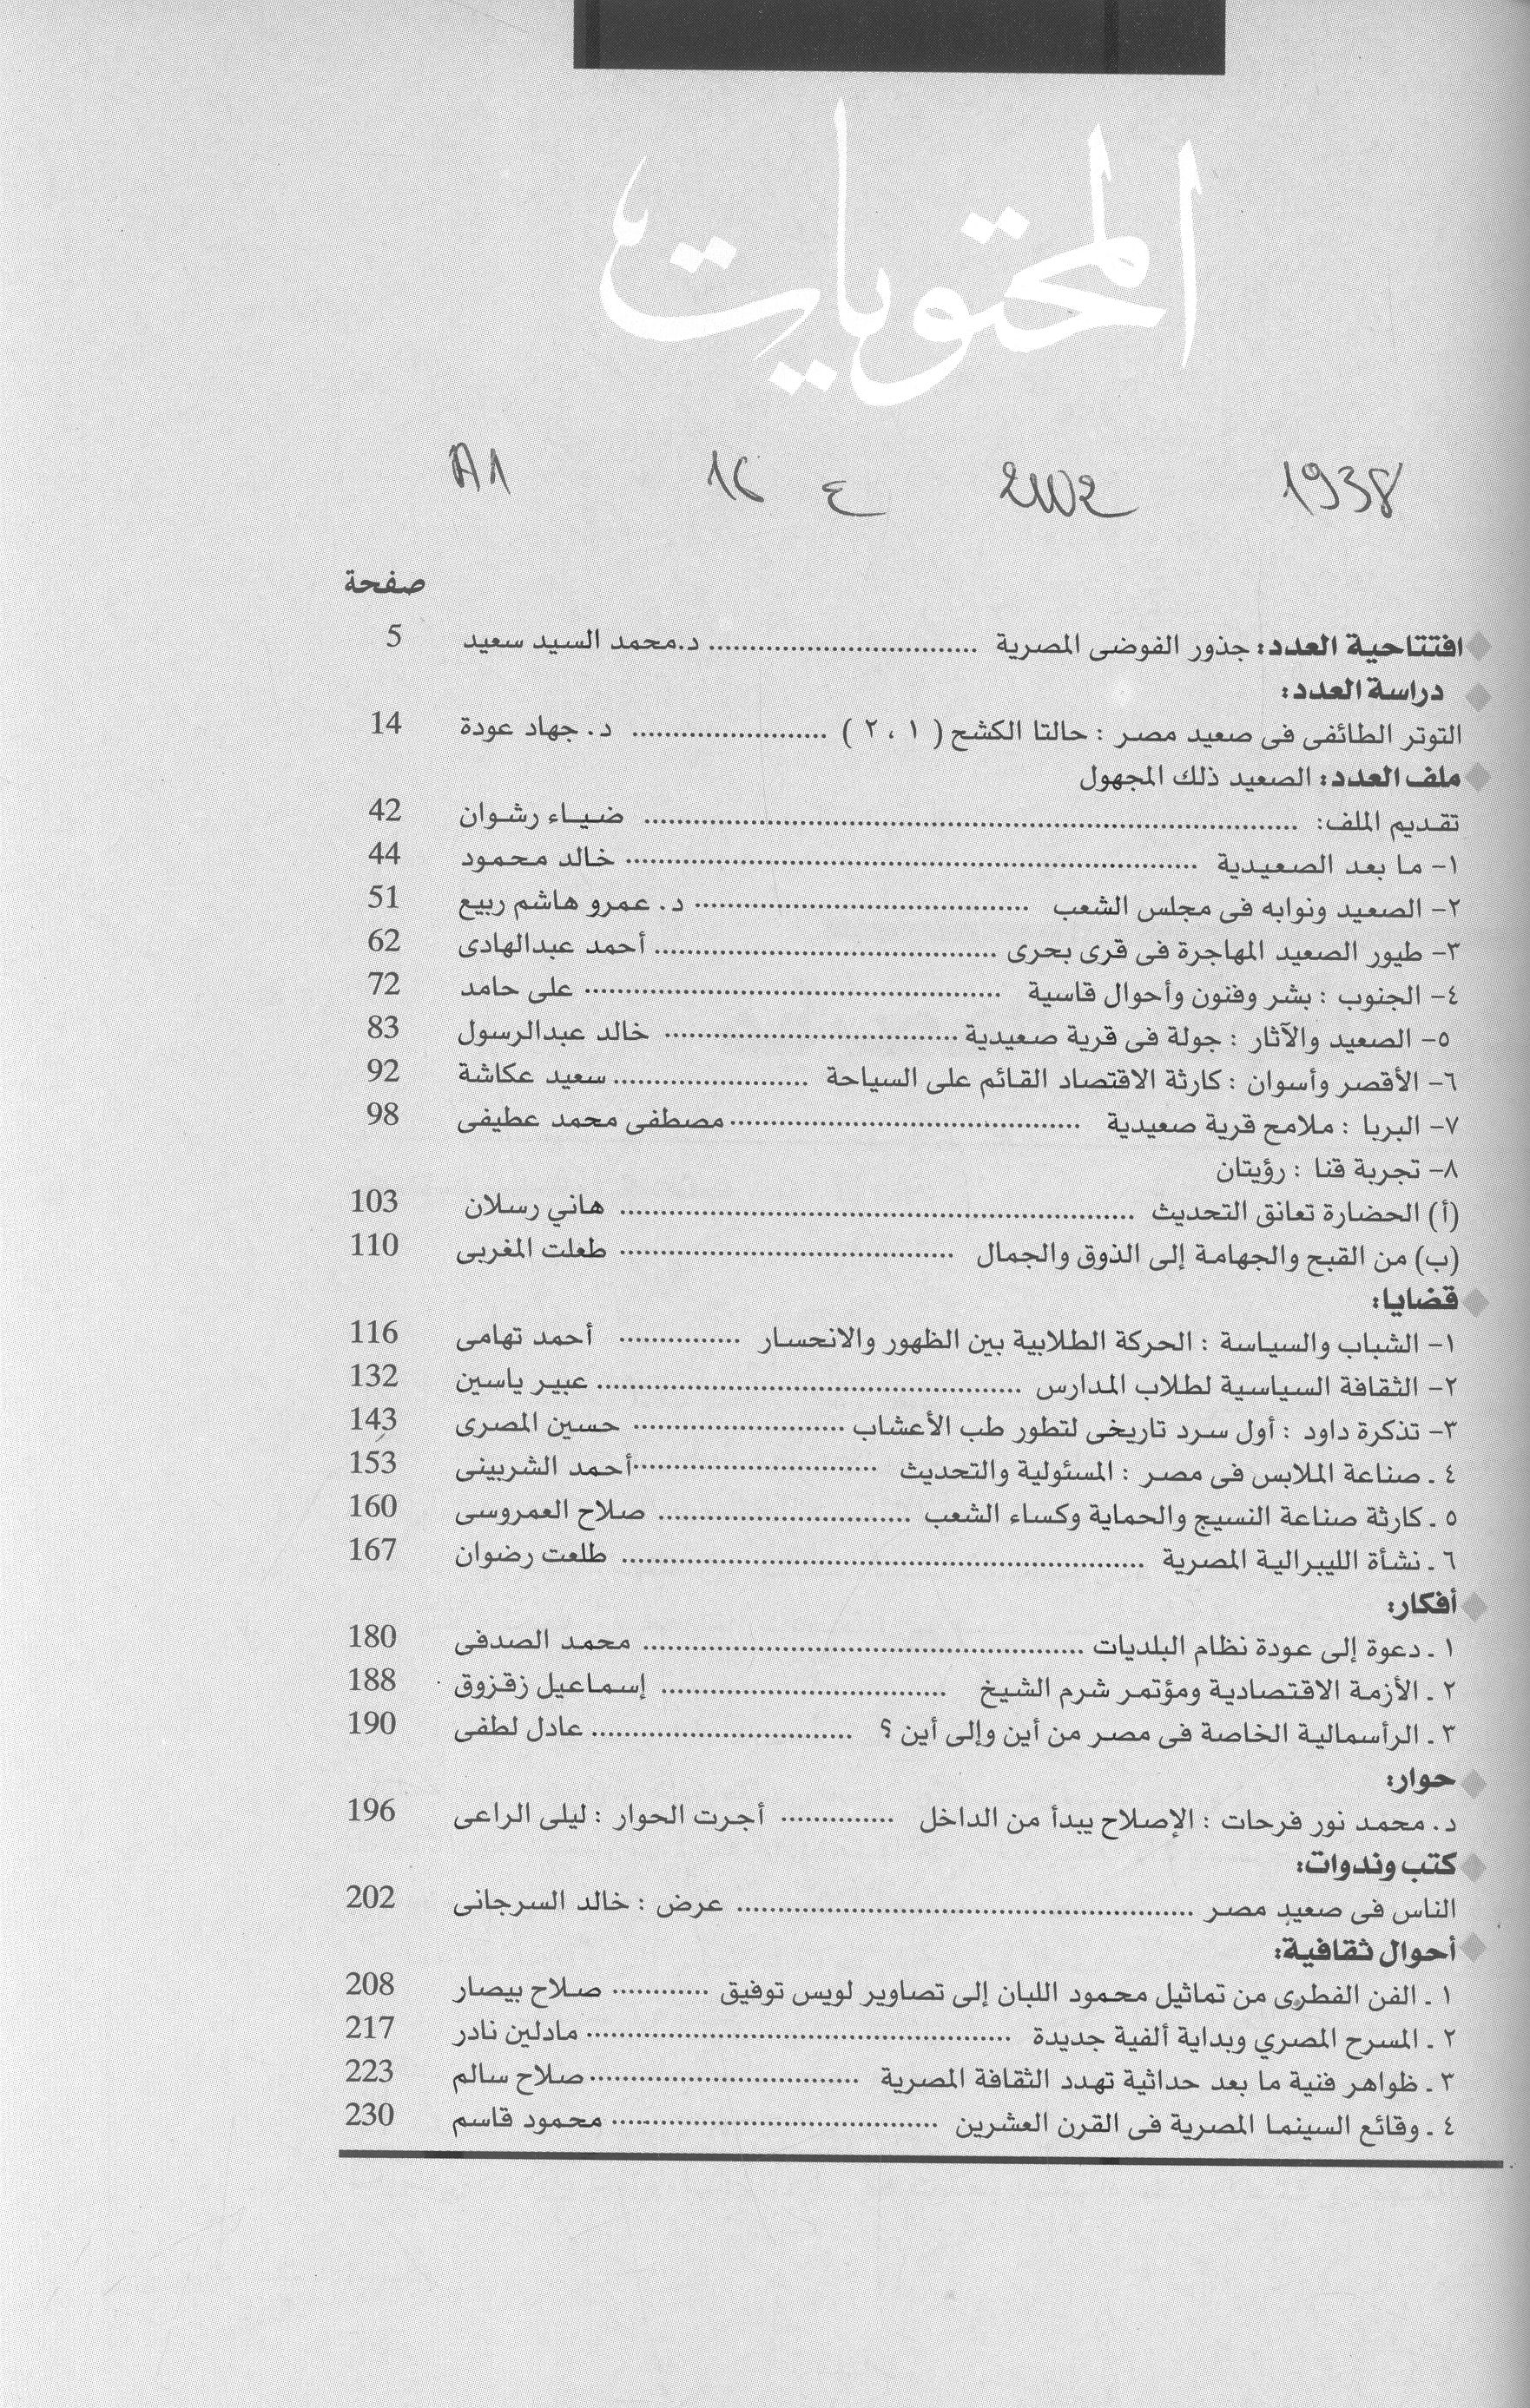 المحتويات
A1 16 ع 2002 1938
صفحة
افتتاحية العدد: جذور الفوضى المصرية ................................ د.محمد السيد سعيد 5
دراسة العدد:
التوتر الطائفى فى صعيد مصر : حالتا الكشح ( ١ ، ٢ ) ........................ د. جهاد عودة 14
ملف العدد: الصعيد ذلك المجهول
تقديم الملف: ................................ ضياء رشوان 42
١- ما بعد الصعيدية ................................ خالد محمود 44
٢- الصعيد ونوابه فى مجلس الشعب ................................ د. عمرو هاشم ربيع 51
٣- طيور الصعيد المهاجرة فى قرى بحرى ................................ أحمد عبدالهادى 62
٤- الجنوب : بشر وفنون وأحوال قاسية ................................ على حامد 72
٥- الصعيد والآثار : جولة فى قرية صعيدية ................................ خالد عبدالرسول 83
٦- الأقصر وأسوان : كارثة الاقتصاد القائم على السياحة ........................ سعيد عكاشة 92
٧- البربا : ملامح قرية صعيدية ................................ مصطفى محمد عطيفى 98
٨- تجربة قنا : رؤيتان
(أ) الحضارة تعانق التحديث ................................ هاني رسلان 103
(ب) من القبح والجهامة إلى الذوق والجمال ................................ طعلت المغربى 110
قضايا:
١- الشباب والسياسة : الحركة الطلابية بين الظهور والانحسار ............... أحمد تهامى 116
٢- الثقافة السياسية لطلاب المدارس ................................ عبير ياسين 132
٣- تذكرة داود : أول سرد تاريخى لتطور طب الأعشاب ........................ حسين المصرى 143
٤ ـ صناعة الملابس فى مصر : المسئولية والتحديث ................................ أحمد الشربينى 153
٥ ـ كارثة صناعة النسيج والحماية وكساء الشعب ................................ صلاح العمروسى 160
٦ ـ نشأة الليبرالية المصرية ................................ طلعت رضوان 167
أفكار:
١ ـ دعوة إلى عودة نظام البلديات ................................ محمد الصدفى 180
٢ ـ الأزمة الاقتصادية ومؤتمر شرم الشيخ ................................ إسماعيل زقزوق 188
٣ ـ الرأسمالية الخاصة فى مصر من أين وإلى أين ؟ ................................ عادل لطفى 190
حوار:
د. محمد نور فرحات : الإصلاح يبدأ من الداخل .............. أجرت الحوار : ليلى الراعى 196
كتب وندوات:
الناس فى صعيد مصر ................................ عرض : خالد السرجانى 202
أحوال ثقافية:
١ ـ الفن الفطرى من تماثيل محمود اللبان إلى تصاوير لويس توفيق ............ صلاح بيصار 208
٢ ـ المسرح المصري وبداية ألفية جديدة ................................ مادلين نادر 217
٣ ـ ظواهر فنية ما بعد حداثية تهدد الثقافة المصرية ................................ صلاح سالم 223
٤ ـ وقائع السينما المصرية فى القرن العشرين ................................ محمود قاسم 230